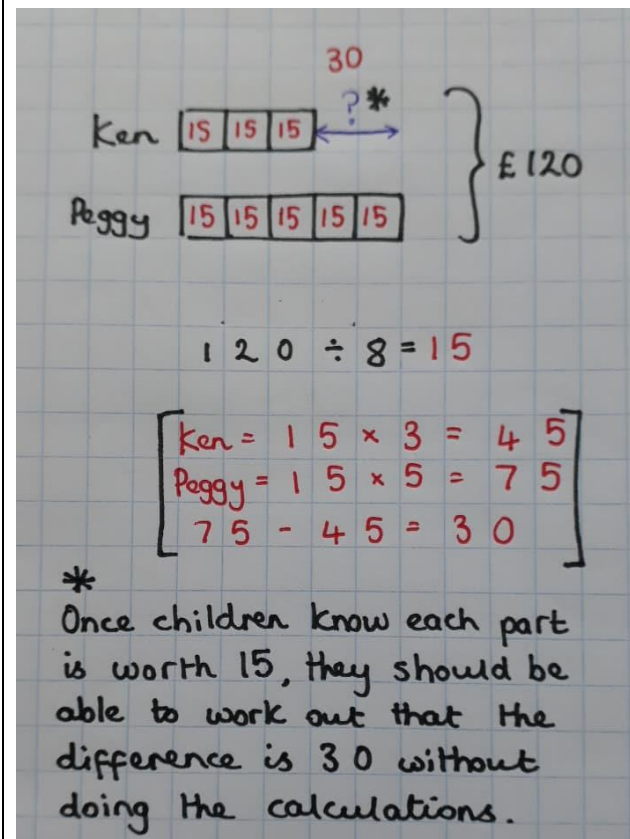 30
? *
Ken 15 15 15
£120
Peggy 15 15 15 15 15
120 ÷ 8 = 15
Ken = 15 × 3 = 45
Peggy = 15 × 5 = 75
75 - 45 = 30
*
Once children know each part
is worth 15, they should be
able to work out that the
difference is 30 without
doing the calculations.